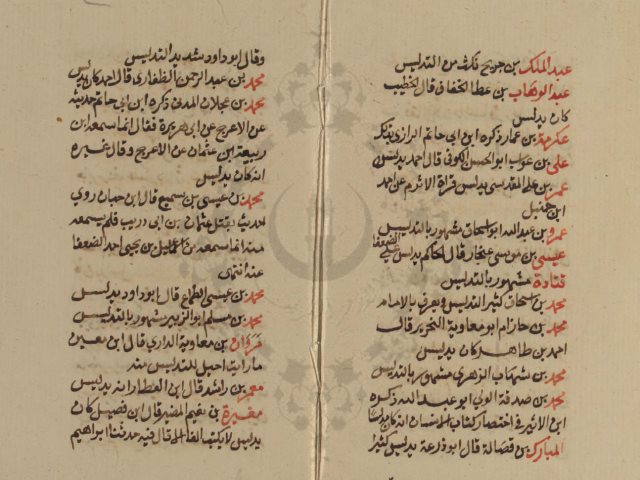 عبد الملك بن جريج مكثر من التدليس
عبد الوهاب بن عطا الخفاف قال الخطيب
كان يدلس
عكرمة بن عمار ذكره ابن ابي حاتم الرازي
علي بن غراب ابو الحسن الكوفي قال احمد يدلس
عمر بن علي المقدمي يدلس الاثرم عن احمد
ابن حنبل
عمرو بن عبد الله ابو اسحاق مشهور بالتدليس
عيسى بن موسى غنجار قال الحاكم يدلس عن الضعفا
قتادة مشهور بالتدليس
محمد بن اسحاق كثير التدليس
محمد بن خازم ابو معاوية الضرير قال
احمد بن طاهر كان يدلس
محمد بن شهاب الزهري مشهور بالتدليس
محمد بن صدقة ابو عبد الله ذكره
ابن الاثير في اختصار كتاب الانساب انه كان مدلسا
المبارك بن فضالة قال ابو زرعة يدلس كثيرا
وقال ابو داود شديد التدليس
محمد بن عبد الرحمن الطفاوي قال احمد كان يدلس
محمد بن عجلان المدني ذكره ابن ابي حاتم حديثه
عن الاعرج عن ابي هريرة فقال انما سمعه من
ربيعة بن عثمان عن الاعرج وقال غيره
انه كان يدلس
محمد بن عيسى بن سميع قال ابن حبان روى
حديث مقتل عثمان بن ابي ذيب فلم يسمعه
منه انما سمعه من اسماعيل بن يحيى احد الضعفا
عنه انتهى
محمد بن عيسى الطباع قال ابو داود يدلس
محمد بن مسلم ابو الزبير مشهور بالتدليس
مروان بن معاوية الفزاري قال ابن معين
ما رايت احيل للتدليس منه
معمر بن راشد قال ابن القطان انه يدلس
مغيرة بن مقسم الضبي قال ابن فضيل كان
يدلس لا يكتب الا ما قال فيه حدثنا ابراهيم